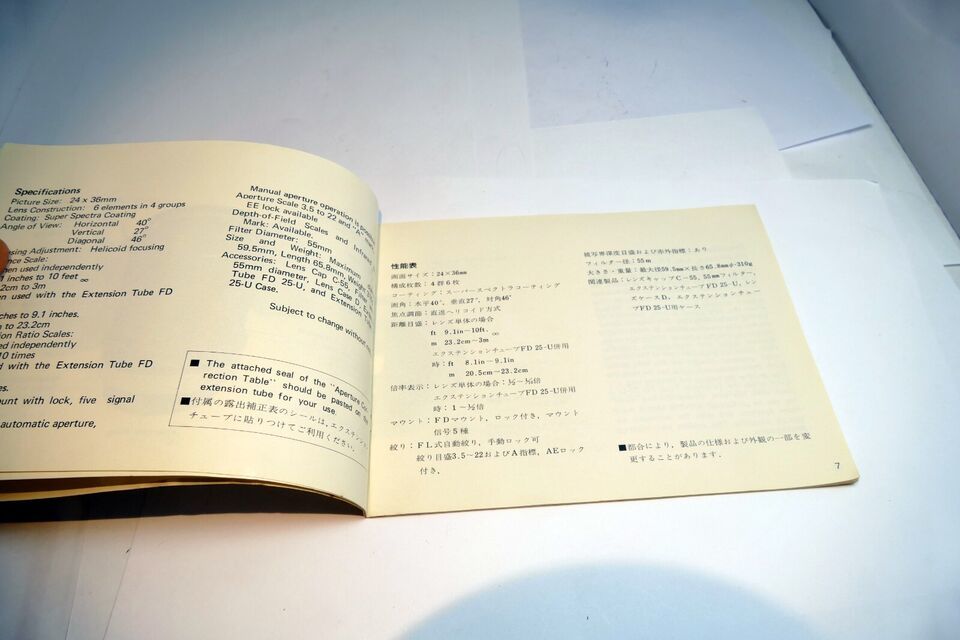 Specifications
Picture Size: 24 x 36mm
Lens Construction: 6 elements in 4 groups
Coating: Super Spectra Coating
Angle of View: Horizontal 40°
Vertical 27°
Diagonal 46°
using Adjustment: Helicoid focusing
ance Scale:
en used independently
inches to 10 feet ∞
2cm to 3m
en used with the Extension Tube FD
ches to 9.1 inches.
to 23.2cm
on Ratio Scales:
ed independently
10 times
d with the Extension Tube FD
es.
unt with lock, five signal
automatic aperture,
Manual aperture operation is
Aperture Scale 3.5 to 22 and "A"
EE lock available
Depth-of-Field Scales and Infrared
Mark: Available.
Filter Diameter: 55mm
Size and Weight: Maximum
59.5mm, Length 65.8mm, Weight
Accessories: Lens Cap C-55,
55mm diameter, Lens Case D, Extension
Tube FD 25-U, and Extension Tube
25-U Case.
Subject to change without
■ The attached seal of the "Aperture
rection Table" should be pasted on
extension tube for your use.
■付属の露出補正表のシールは、エクステンション
チューブに貼りつけてご利用ください。
性能表
画面サイズ：24×36mm
構成枚数：4群6枚
コーティング：スーパースペクトラコーティング
画角：水平40°、垂直27°、対角46°
焦点調節：直進ヘリコイド方式
距離目盛：レンズ単体の場合
ft 9.1in〜10ft. ∞
m 23.2cm〜3m
エクステンションチューブFD 25-U併用
時：ft 8.1in〜9.1in
m 20.5cm〜23.2cm
倍率表示：レンズ単体の場合：
エクステンションチューブFD 25-U併用
時：1〜½倍
マウント：FDマウント、ロック付き、マウント
信号5種
絞り：FL式自動絞り，手動ロック可
絞り目盛3.5〜22およびA指標，AEロック
付き．
被写界深度目盛および赤外指標：あり
フィルター径：55m
大きさ・重量：最大径59.5mm×長さ65.8mmφ-310g
関連製品：レンズキャップC-55，55mmフィルター，
エクステンションチューブFD 25-U，レン
ズケースD，エクステンションチュー
ブFD 25-U用ケース
■都合により，製品の仕様および外観の一部を変
更することがあります．
7